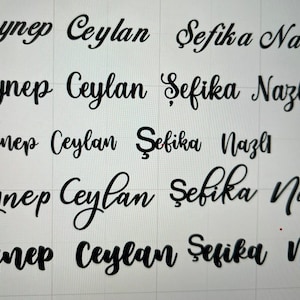 ynep Ceylan Şefika Na
ynep Ceylan Şefika Nazl
nep Ceylan Şefika Nazlı
ynep Ceylan Şefika N
nep Ceylan Şefika N